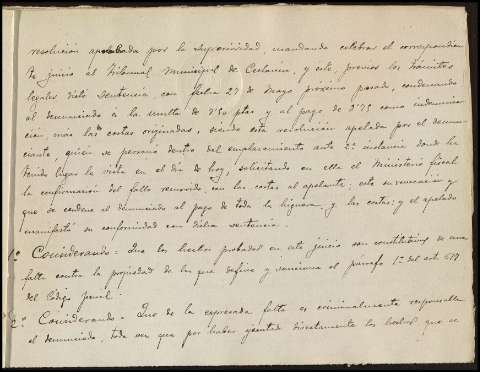 resolución apelada por la superioridad, mandando celebrar el correspondien
te juicio al Tribunal Municipal de, y este, previos los trámites
legales dictó sentencia, con fecha 27 de Mayo próximo pasado, condenando
al denunciado a la multa de 7'50 ptas y al pago de 3'75 como indemniza
ción, más las costas originadas, siendo esta resolución apelada por el denun
ciante, quien se personó dentro del emplazamiento ante 2ª instancia donde ha
tenido lugar la vista en el día de hoy, solicitando en ella el Ministerio fiscal
la confirmación del fallo recurrido, con las costas al apelante; este su revocación y
que se condene al denunciado al pago de toda la higuera, y las costas: y el apelado
manifestó su conformidad con dicha sentencia.
1º Considerando: Que los hechos probados en este juicio son constitutivos de una
falta contra la propiedad de las que define y sanciona el párrafo 1º del art. 617
del Código penal.
2º Considerando = Que de la expresada falta es criminalmente responsable
el denunciado, toda vez que por haber ejecutado directamente los hechos que se